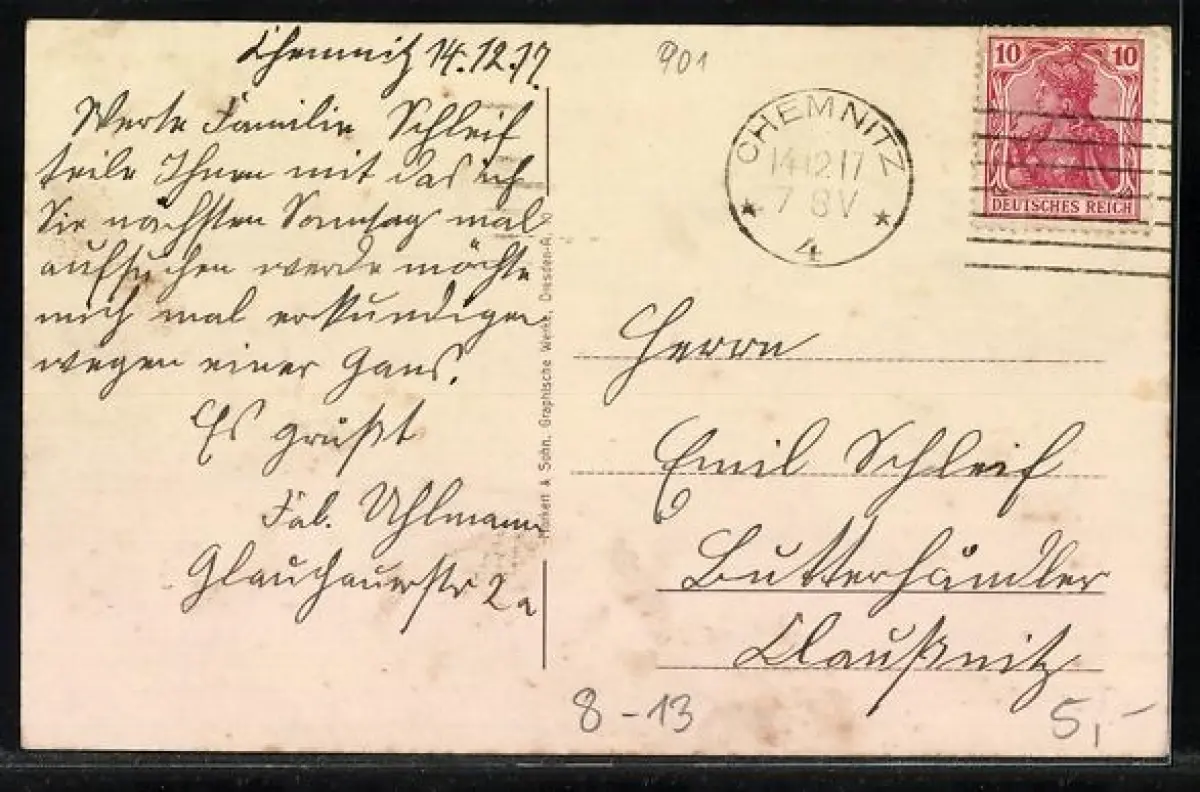 Chemnitz 14.12.17.
Werte Familie Schleif
teile Ihnen mit das ich
Sie nächsten Sonntag mal
aufsuchen werde möchte
mich mal erkundigen
wegen einer Gans.
Es grüßt
Fab. Uhlmann
Glauchauerstr 2a
Markert & Sohn, Graphische Werke, Dresden-A.
901
CHEMNITZ
14.12.17
7 8V
* 4 *
10 10
DEUTSCHES REICH
Herrn
Emil Schleif
Butterhändler
Claußnitz
8-13
5,-